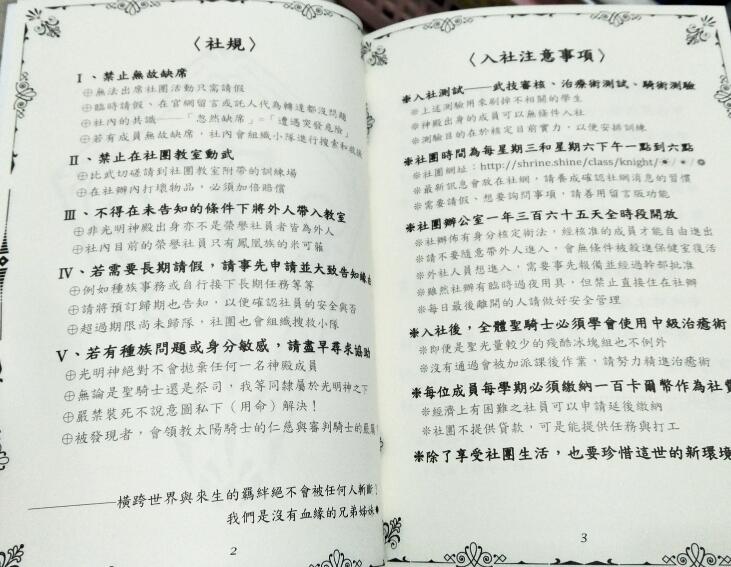 〈社規〉
Ⅰ、禁止無故缺席
⊕無法出席社團活動只需請假
⊕臨時請假、在官網留言或託人代為轉達都沒問題
⊕社內的共識——「忽然缺席」=「遭遇突發危險」
⊕若有成員無故缺席，社內會組織小隊進行搜索和救援
Ⅱ、禁止在社團教室動武
⊕比武切磋請到社團教室附帶的訓練場
⊕在社辦內打壞物品，必須加倍賠償
Ⅲ、不得在未告知的條件下將外人帶入教室
⊕非光明神殿出身亦不是榮譽社員者皆為外人
⊕社內目前的榮譽社員只有鳳凰族的米可蕥
Ⅳ、若需要長期請假，請事先申請並大致告知緣由
⊕例如種族事務或自行接下長期任務等等
⊕請將預訂歸期也告知，以便確認社員的安全與否
⊕超過期限尚未歸隊，社團也會組織搜救小隊
Ⅴ、若有種族問題或身分敏感，請盡早尋求協助
⊕光明神絕對不會拋棄任何一名神殿成員
⊕無論是聖騎士還是祭司，我等同隸屬於光明神之下
⊕嚴禁裝死不說意圖私下（用命）解決！
⊕被發現者，會領教太陽騎士的仁慈與審判騎士的嚴厲
————橫跨世界與來生的羈絆絕不會被任何人斬斷！
我們是沒有血緣的兄弟姊妹
2
〈入社注意事項〉
※入社測試——武技審核、治療術測試、騎術測驗
※上述測驗用來刷掉不相關的學生
※神殿出身的成員可以無條件入社
※測驗目的在於核定目前實力，以便安排訓練
※社團時間為每星期三和星期六下午一點到六點
※社團網址：http://shrine.shine/class/knight/
※最新訊息會放在社網，請養成確認社網消息的習慣
※需要請假、想要詢問事項，請善用留言版功能
※社團辦公室一年三百六十五天全時段開放
※社辦佈有身分核定術法，經核准的成員才能自由進出
※請不要隨意帶外人進入，會無條件被殺進保健室復活
※外社人員想進入，需要事先報備並經過幹部批准
※雖然社辦有臨時過夜用具，但禁止直接住在社辦
※每日最後離開的人請做好安全管理
※入社後，全體聖騎士必須學會使用中級治癒術
※即便是聖光量較少的殘酷冰塊組也不例外
※沒有通過會被加派課後作業，請努力精進治癒術
※每位成員每學期必須繳納一百卡爾幣作為社費
※經濟上有困難之社員可以申請延後繳納
※社團不提供貸款，可是能提供任務與打工
※除了享受社團生活，也要珍惜這世的新環境
3